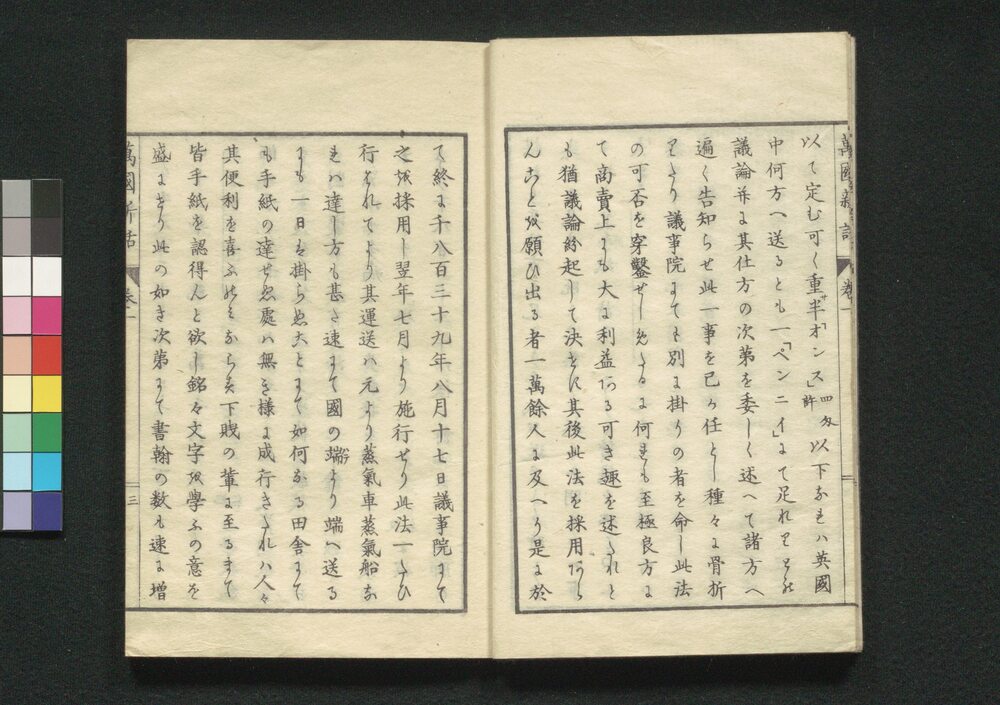 萬國新話 卷一
以て定む可く重サ半「オンス」四匁許以下なれハ英國
中何方へ送るとも一「ペンニイ」にて足れりとの
議論并に其仕方の次第を委しく述へて諸方へ
遍く告知らせ此一事を己か任とし種々に骨折
りたり議事院にても別に掛りの者を命し此法
の可否を穿鑿せしめたるに何れも至極良方に
て商賣上にも大に利益ある可き趣を述たれと
も猶議論紛起して決せす其後此法を採用あら
んことを願ひ出る者一萬餘人に及へり是に於
て終に千八百三十九年八月十七日議事院にて
之を採用し翌年七月より施行せり此法一たひ
行はれてより其運送ハ元より蒸氣車蒸氣船な
れハ達し方も甚き速にて國の端より端へ送る
にも一日を掛らぬことにて如何なる田舎にて
も手紙の達せぬ處ハ無き様に成行きたれハ人々
其便利を喜ふのみならす下賤の輩に至るまて
皆手紙を認得んと欲し銘々文字を學ふの意を
盛にせり此の如き次第にて書翰の数も速に増
萬國新話 卷一 三